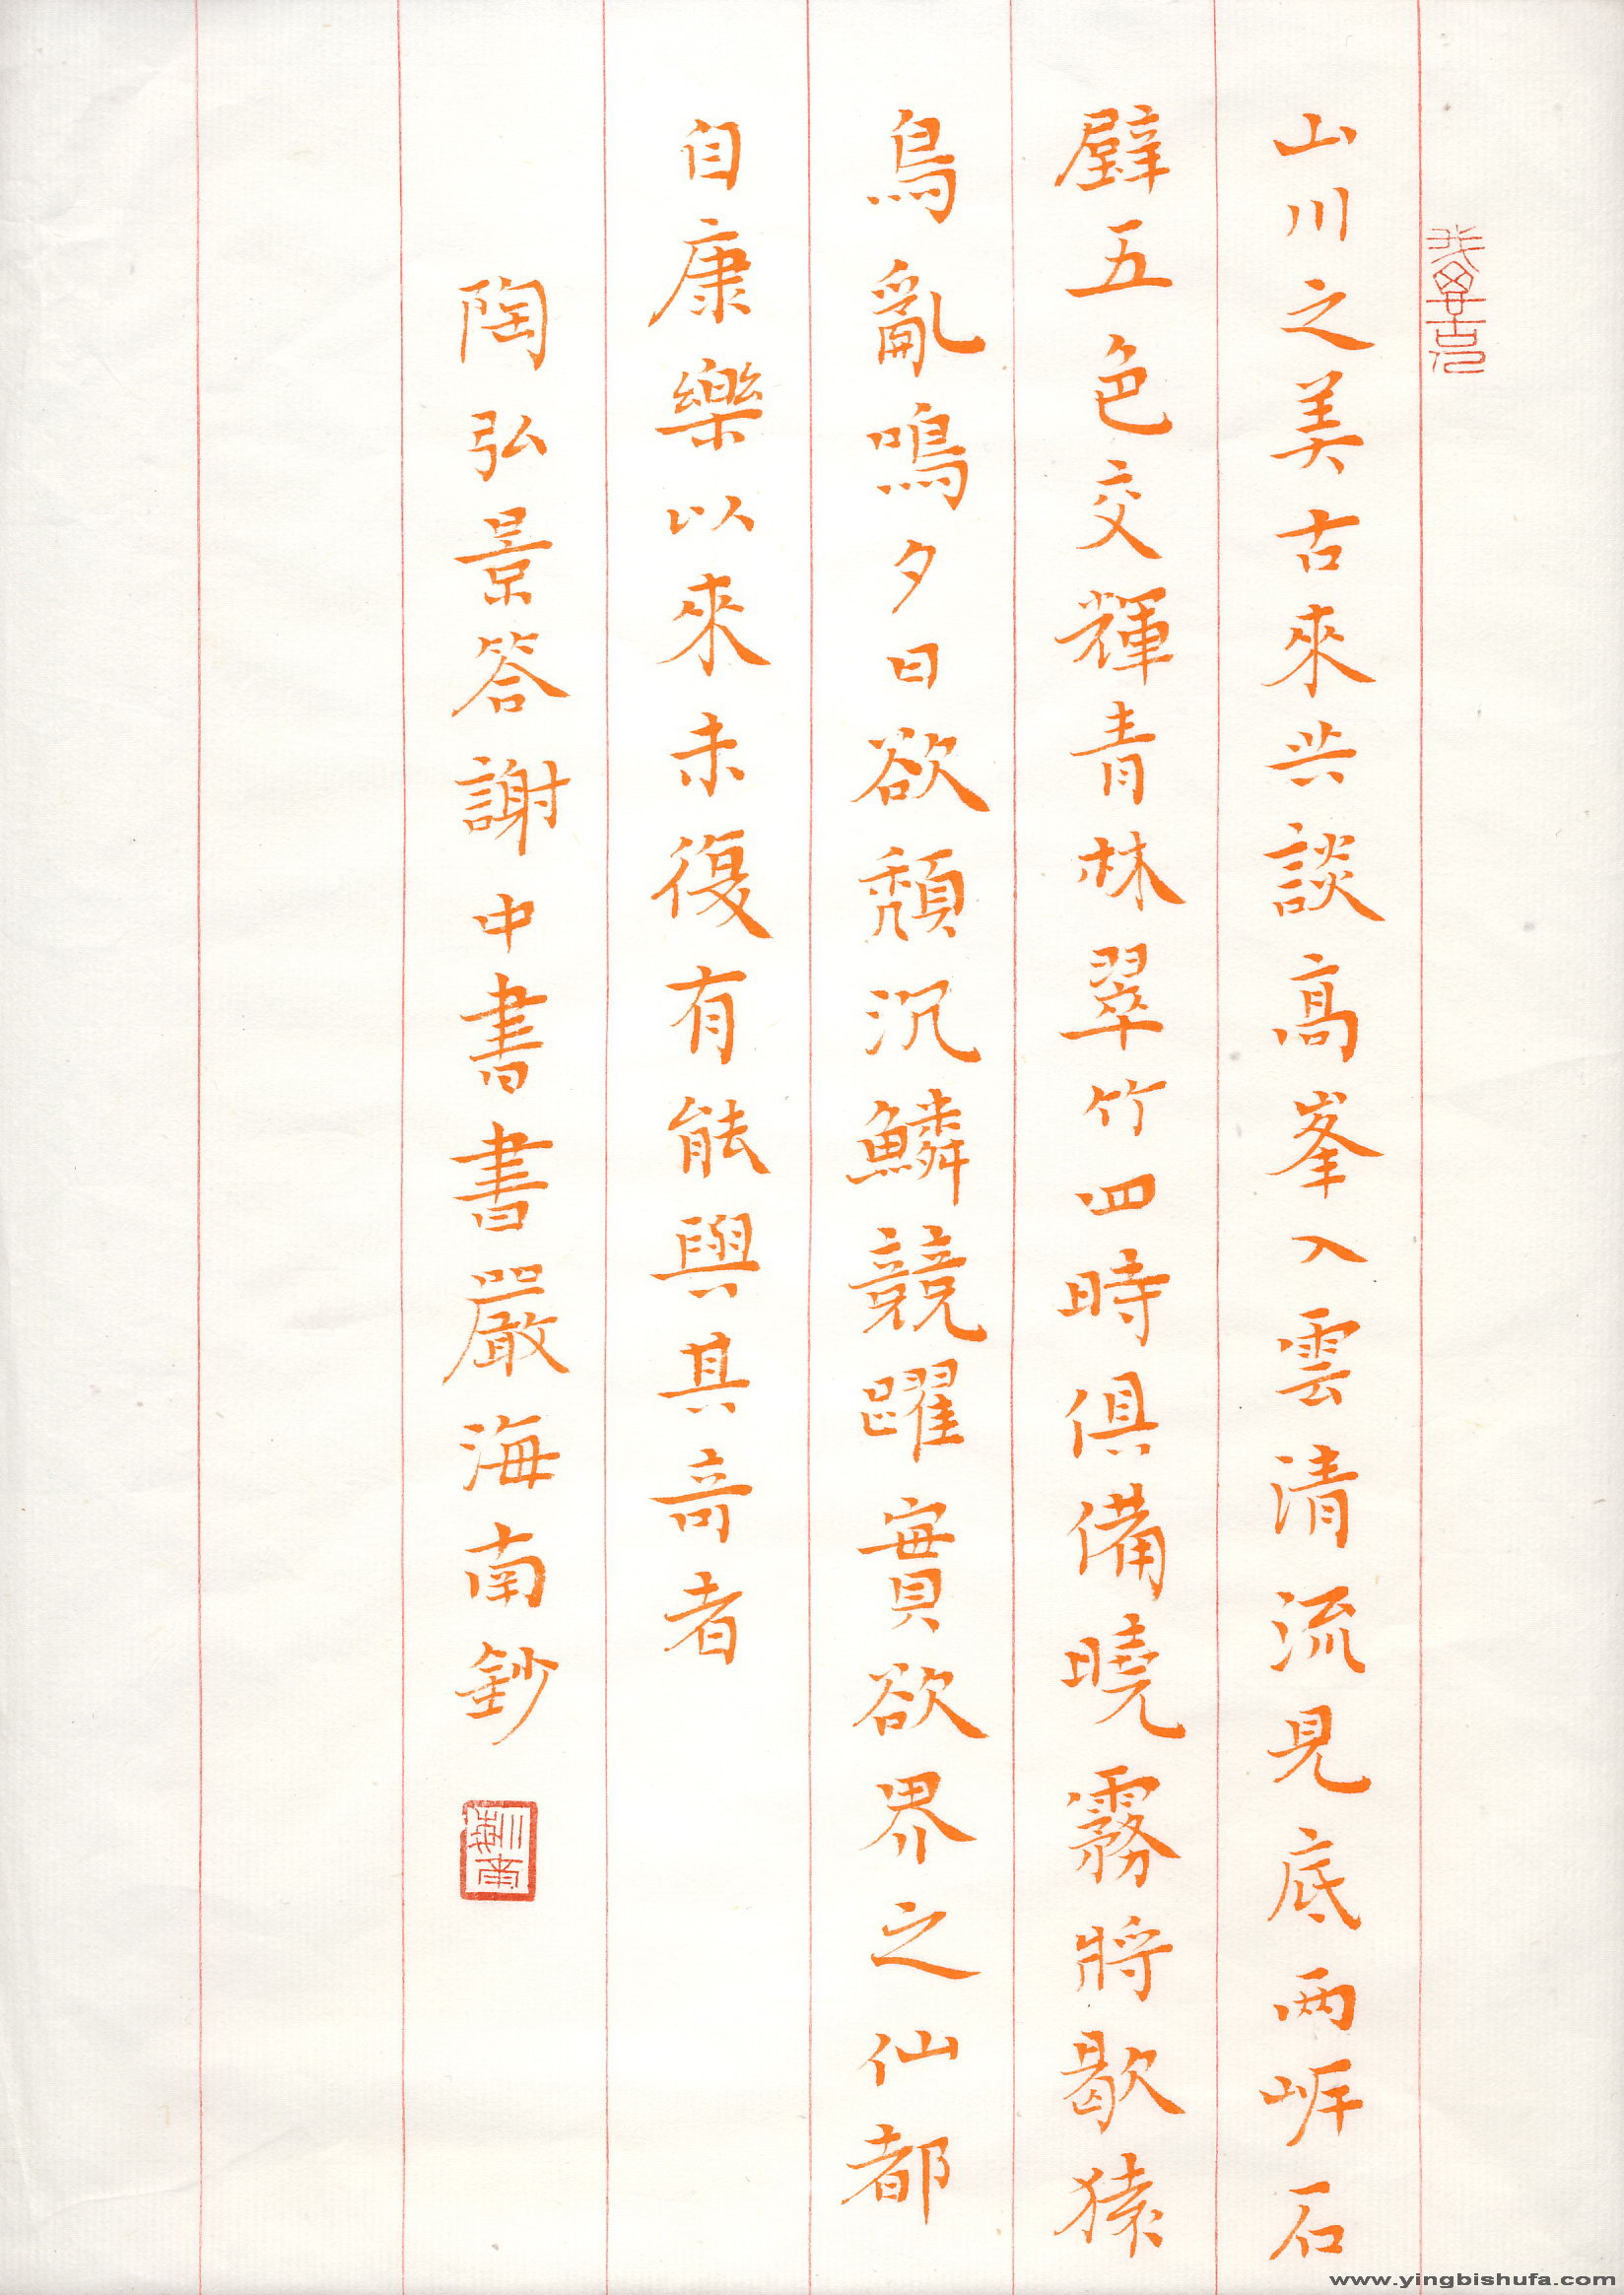 山川之美古來共談高峯入雲清流見底兩崖石
壁五色交輝青林翠竹四時俱備曉霧將歇猿
鳥亂鳴夕日欲頹沉鱗競躍實欲界之仙都
自康樂以來未復有能與其奇者
陶弘景答謝中書書嚴海南鈔
www.yingbishufa.com